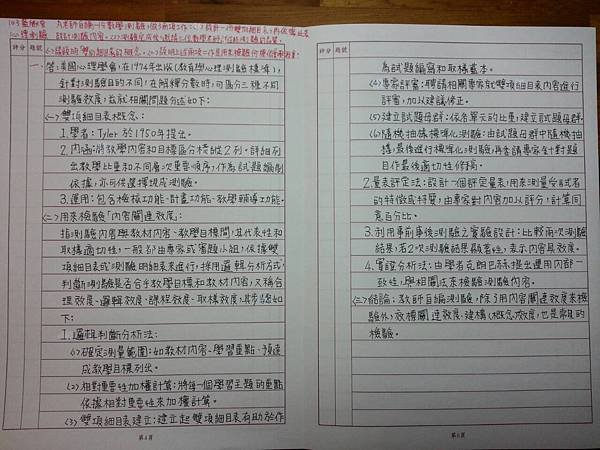 評分 題號
一、答:美國心理學會,在1974年出版《教育與心理測驗標準》,
針對測驗目的不同,在解釋分數時,可區分三種不同
測驗效度,茲就相關問題分述如下:
(一)雙項細目表概念:
1.學者:Tyler於1950年提出。
2.內涵:將教學內容和目標區分橫縱2列。詳細列
出教學比重和不同層次重要順序,作為試題編制
依據,亦可供選擇現成測驗。
3.運用:包含檢核功能、計畫功能、教學輔導功能。
(二)用來檢驗「內容關連效度」:
指測驗內容與教材內容、教學目標間,其代表性和
取樣適切性,一般都由專家或審題小組,依據雙
項細目表或測驗明細表來進行,採用邏輯分析方式,
判斷測驗是否合乎教學目標和教材內容,又稱合
理效度、邏輯效度、課程效度、取樣效度,其步驟如
下:
1.邏輯判斷分析法:
(1)確定測量範圍:如教材內容、學習重點、預達
成教學目標列出。
(2)相對重要性加權計算:將每一個學習主題的重點
依據相對重要性來加權計算。
(3)雙項細目表建立:建立起雙項細目表有助於作
第4頁
評分 題號
為試題編寫和取樣藍本。
(4)專家評審:聘請相關專家就雙項細目表內容進行
評審,加以建議修正。
(5)建立試題母群:依各單元的比重,建立試題母群。
(6)隨機抽樣標準化測驗:由試題母群中隨機抽
樣,最後進行標準化測驗,再委請專家全針對題
目作最後適切性修稿。
2.量表評定法:設計一個評定量表,用來測量受試者
的特徵或特質,由專家對內容加以評分,計算同
意百分比。
3.利用事前事後測驗之實驗設計:比較兩次測驗
結果,若2次測驗結果顯著性,表示內容具效度。
4.實證分析法:由學者克朗巴赫提出運用內部一
致性,與相關法來檢驗測驗內容。
(三)結論:教師自編測驗,除了用內容關連效度來檢
驗外,效標關連效度、建構(概念)效度,也是常見的
檢驗。
第5頁